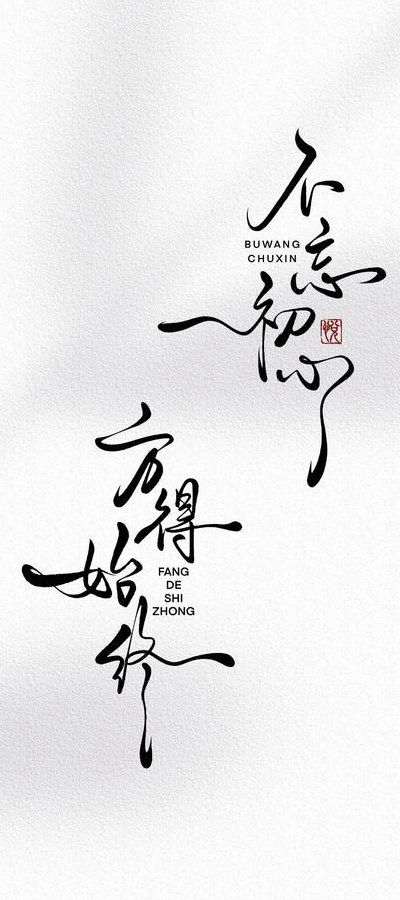 不忘初心
BUWANG
CHUXIN
方得始终
FANG
DE
SHI
ZHONG